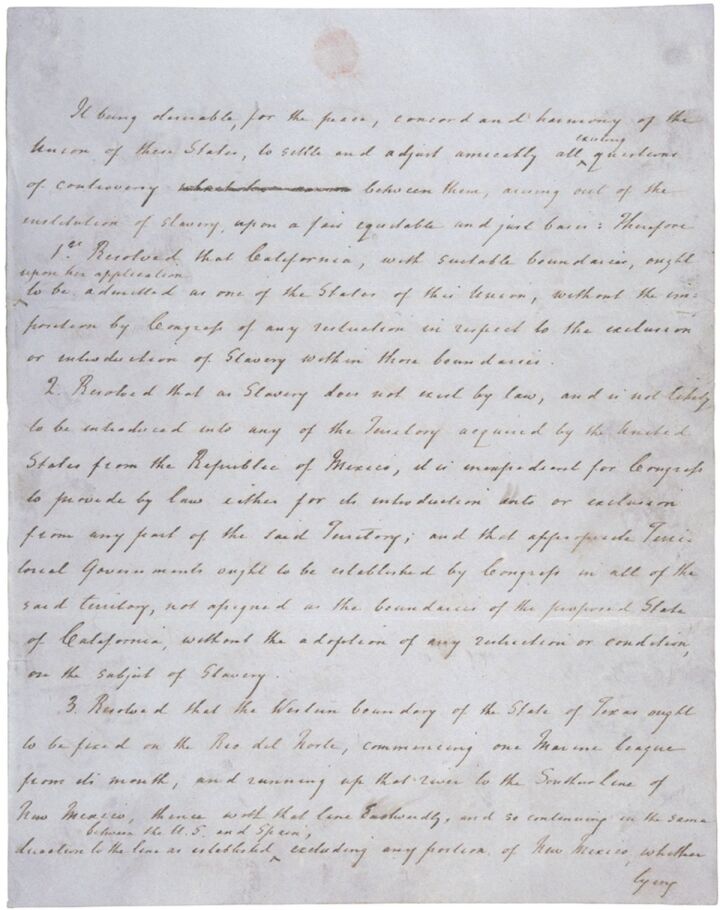 It being desirable, for the peace, concord and harmony of the
existing
Union of these States, to settle and adjust amicably all questions
of controversy between them, arising out of the
institution of Slavery, upon a fair equitable and just basis: Therefore
1st Resolved that California, with suitable boundaries, ought
upon her application
to be admitted as one of the States of this Union, without the im=
position by Congress of any restriction in respect to the exclusion
or introduction of Slavery within those boundaries.
2. Resolved that as Slavery does not exist by law, and is not likely,
to be introduced into any of the Territory acquired by the United
States from the Republic of Mexico, it is inexpedient for Congress
to provide by law either for its introduction into or exclusion
from any part of the said Territory; and that appropriate Terri-
torial Governments ought to be established by Congress in all of the
said territory, not assigned as the boundaries of the proposed State
of California, without the adoption of any restriction or condition,
on the subject of Slavery.
3. Resolved that the Western boundary of the State of Texas ought
to be fixed on the Rio del Norte, commencing one Marine league
from its mouth, and running up that river to the Southern line of
New Mexico, thence with that line Eastwardly, and so continuing in the same
between the U.S. and Spain,
direction to the line as established, excluding any portion of New Mexico, whether
lying